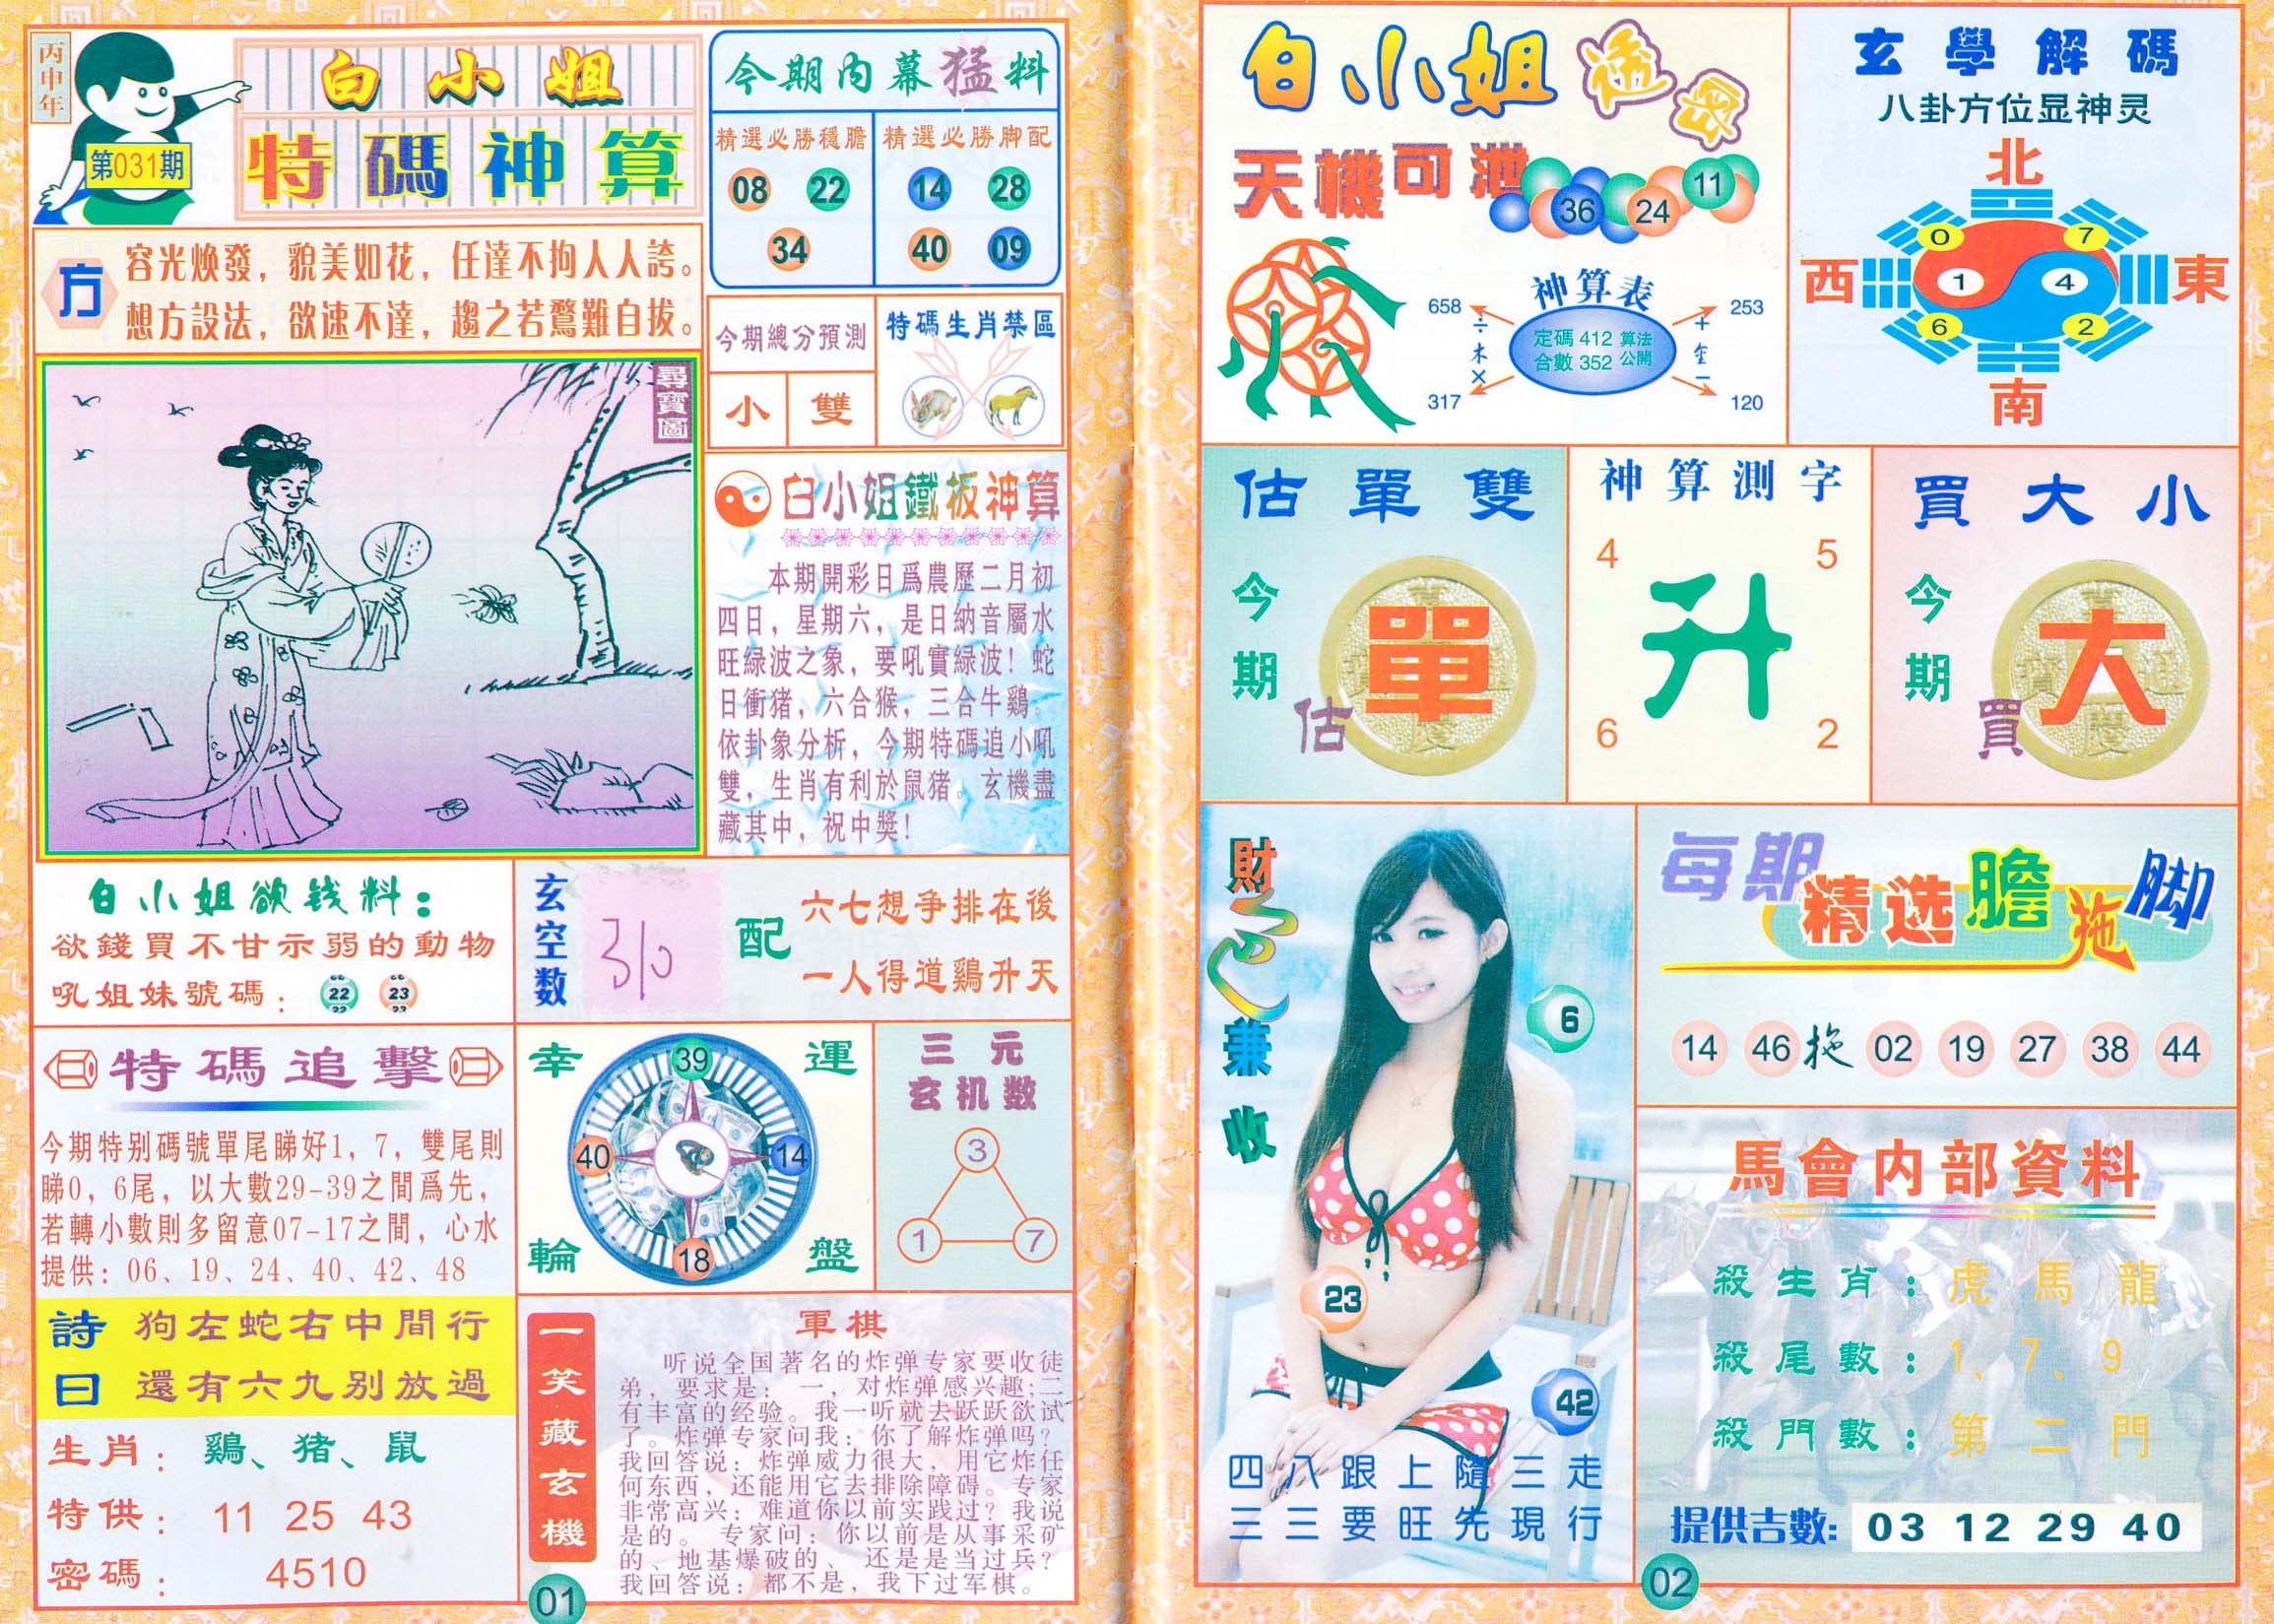 丙申年
第031期
白小姐
特碼神算
方
容光焕發，貌美如花，任達不拘人人誇。
想方設法，欲速不達，趨之若鶩難自拔。
尋寶圖
今期内幕猛料
精選必勝穩膽
08 22
34
精選必勝脚配
14 28
40 09
今期總分預測
小 雙
特碼生肖禁區
白小姐鐵板神算
本期開彩日爲農歷二月初
四日，星期六，是日納音屬水
旺緑波之象，要吼實緑波！蛇
日衝猪，六合猴，三合牛鷄。
依卦象分析，今期特碼追小吼
雙，生肖有利於鼠猪。玄機盡
藏其中，祝中獎！
白小姐欲钱料：
欲錢買不甘示弱的動物
吼姐妹號碼： 22 23
玄空数
310
配
六七想争排在後
一人得道鷄升天
特碼追擊
今期特别碼號單尾睇好1，7，雙尾則
睇0，6尾，以大數29-39之間爲先，
若轉小數則多留意07-17之間，心水
提供：06、19、24、40、42、48
幸運輪盤
39
40 14
18
三元
玄机数
3
1 7
詩曰
狗左蛇右中間行
還有六九别放過
生肖：鷄、猪、鼠
特供：11 25 43
密碼：4510
一笑藏玄機
軍棋
听说全国著名的炸弹专家要收徒
弟，要求是：一，对炸弹感兴趣;二
有丰富的经验。我一听就去跃跃欲试
了。炸弹专家问我：你了解炸弹吗？
我回答说：炸弹威力很大，用它炸任
何东西，还能用它去排除障碍。专家
非常高兴：难道你以前实践过？我说
是的。专家问：你以前是从事采矿
的、地基爆破的、还是是当过兵？
我回答说：都不是，我下过军棋。
01
白小姐透密
天機可泄
36 24 11
神算表
658 253
÷ 木 × + 金 −
定碼 412 算法
合數 352 公開
317 120
玄學解碼
八卦方位显神灵
北
0 7
西 1 4 東
6 2
南
估單雙
今期
估
單
神算測字
4 5
升
6 2
買大小
今期
買
大
財色兼收
6
23
42
四八跟上隨三走
三三要旺先現行
每期精选膽拖脚
14 46 拖 02 19 27 38 44
馬會内部資料
殺生肖：虎 馬 龍
殺尾數：1、7、9
殺門數：第二門
提供吉數: 03 12 29 40
02